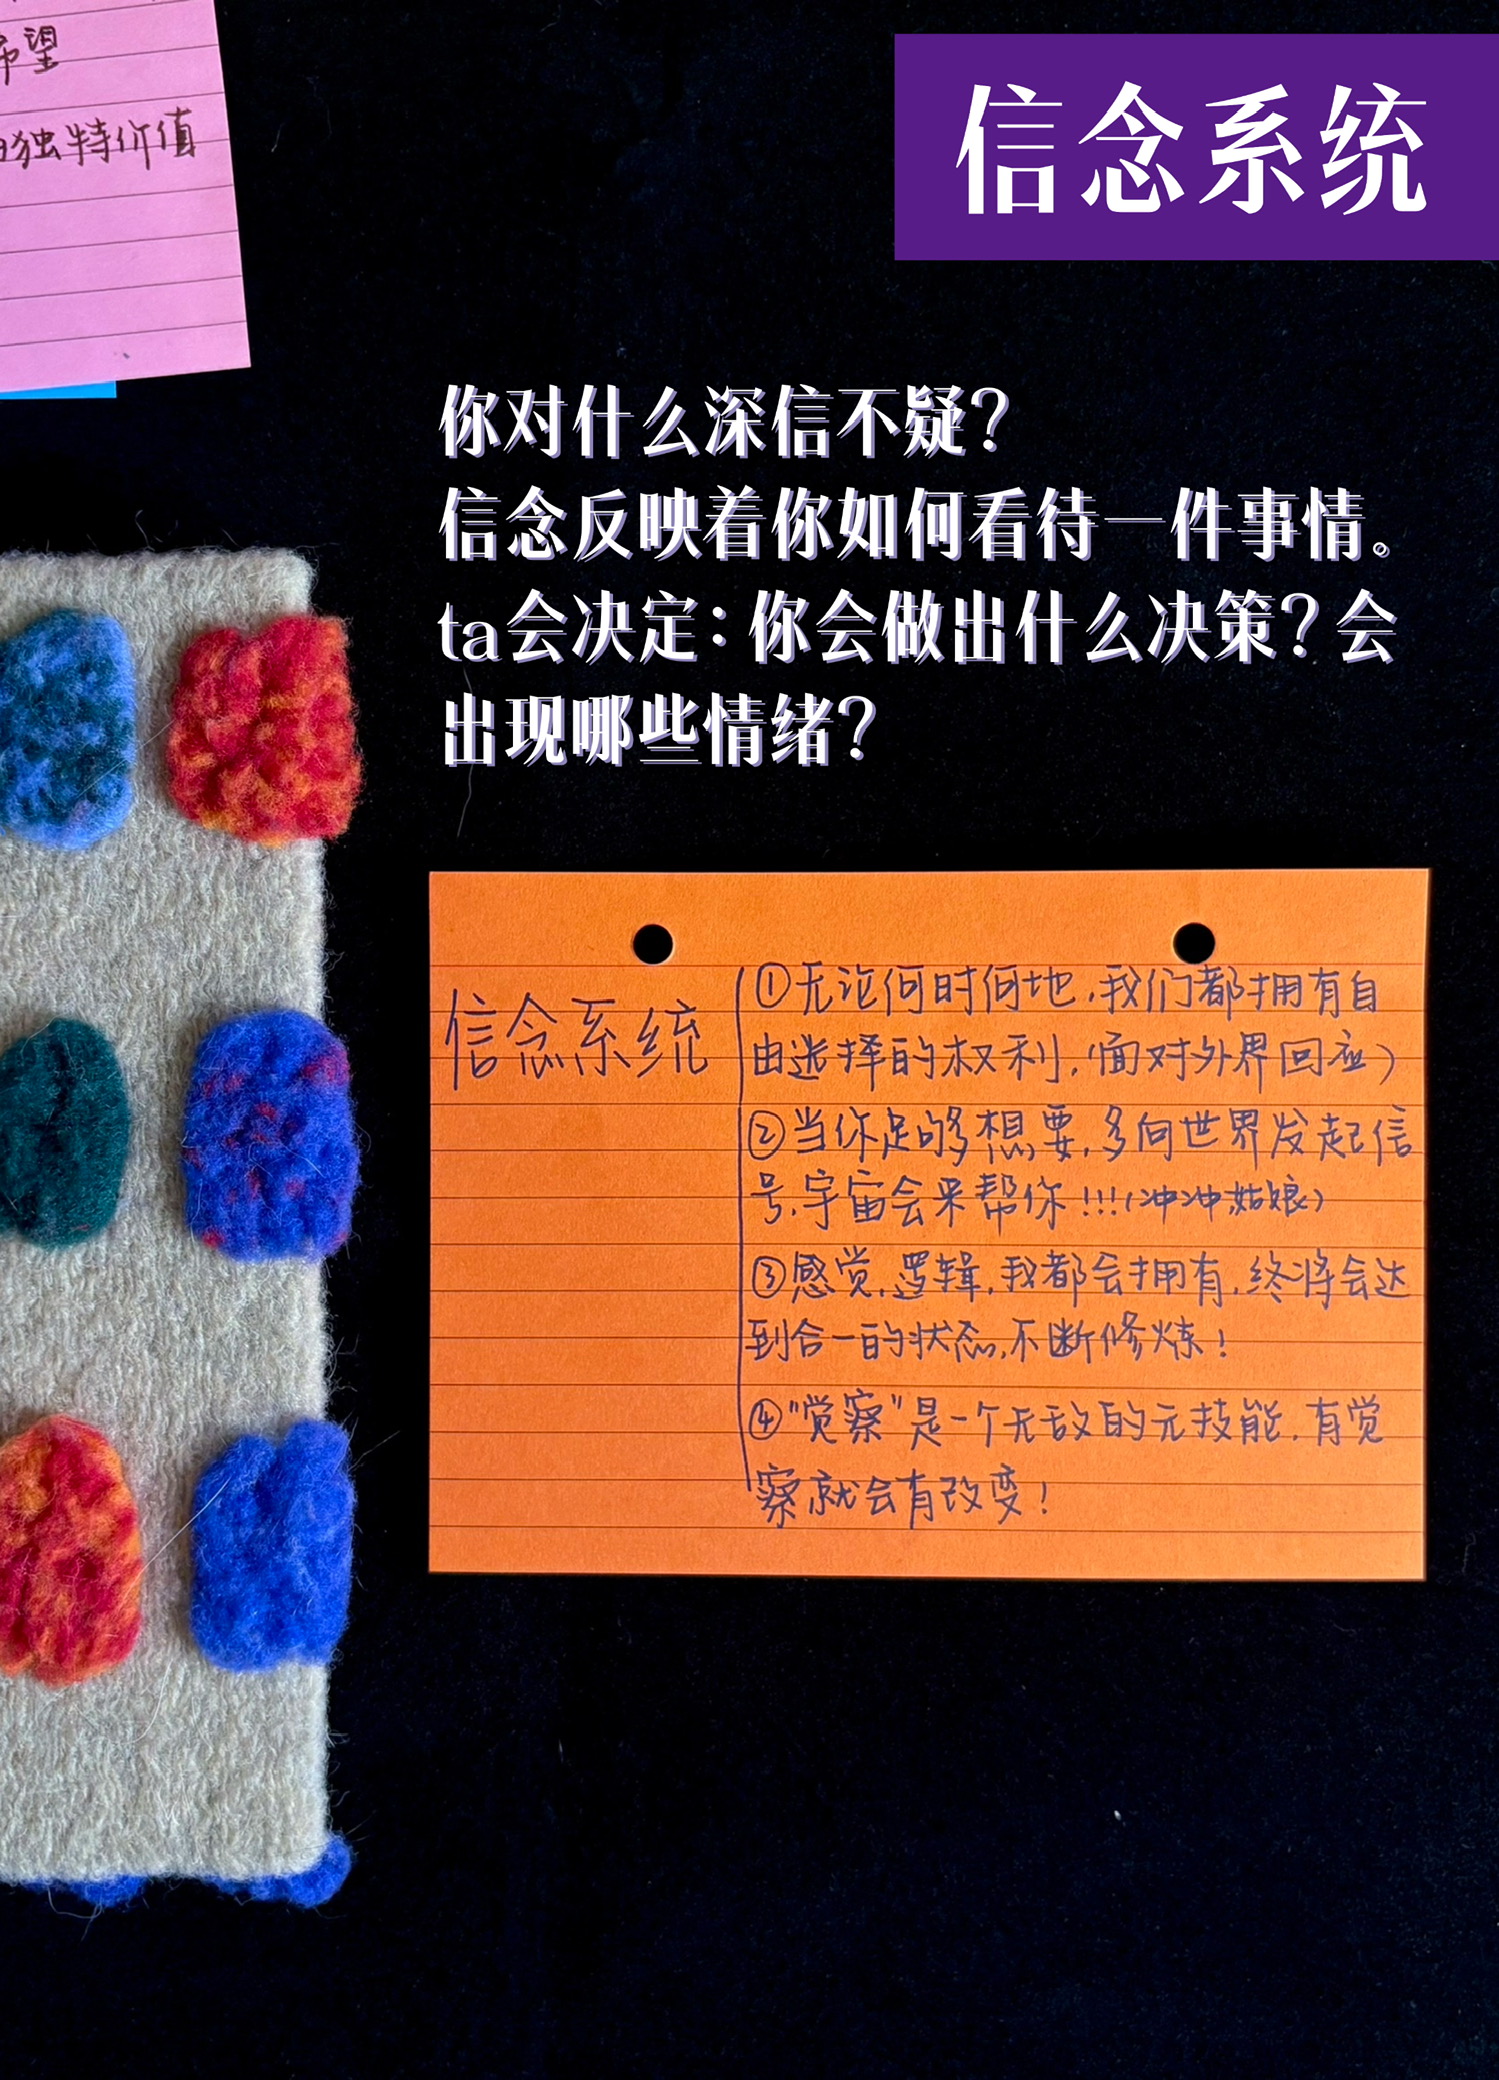 希望
的独特价值
信念系统
你对什么深信不疑？
信念反映着你如何看待一件事情。
ta会决定：你会做出什么决策？会
出现哪些情绪？
信念系统
①无论何时何地，我们都拥有自
由选择的权利，（面对外界回应）
②当你足够想要，多向世界发起信
号，宇宙会来帮你！！！（冲冲姑娘）
③感觉，逻辑，我都会拥有，终将会达
到合一的状态，不断修炼！
④“觉察”是一个无敌的元技能，有觉
察就会有改变！